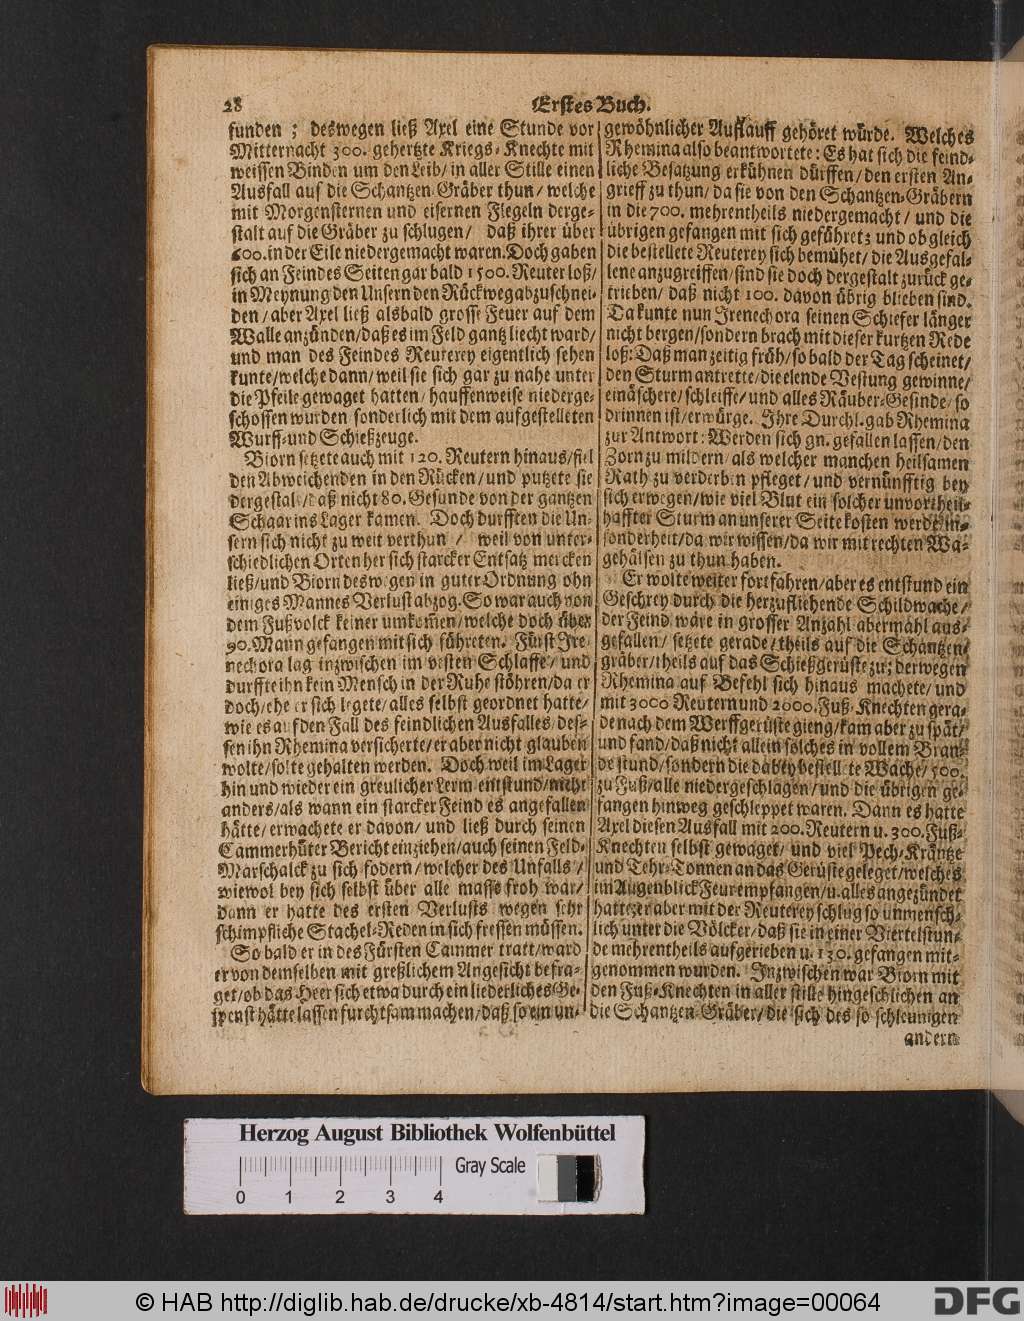 28
Erstes Buch.
funden ; deswegen ließ Axel eine Stunde vor
Mitternacht 300. gehertzte Kriegs-Knechte mit
weissen Binden um den Leib/ in aller Stille einen
Ausfall auf die Schantzen-Gräber thun/ welche
mit Morgensternen und eisernen Flegeln derge-
stalt auf die Gräber zu schlugen/ daß ihrer über
600. in der Eile niedergemacht waren. Doch gaben
sich an Feindes Seiten gar bald 1500. Reuter loß/
in Meynung den Unsern den Rückweg abzuschnei-
den/ aber Axel ließ alsbald grosse Feuer auf dem
Walle anzünden/ daß es im Feld gantz liecht ward/
und man des Feindes Reuterey eigentlich sehen
kunte/ welche dann/ weil sie sich gar zu nahe unter
die Pfeile gewaget hatten/ hauffenweise niederge-
schossen wurden sonderlich mit dem aufgestelleten
Wurff- und Schießzeuge.
Biorn setzete auch mit 120. Reutern hinaus/ fiel
den Abweichenden in den Rücken/ und putzete sie
dergestalt/ daß nicht 80. Gesunde von der gantzen
Schaar ins Lager kamen. Doch durfften die Un-
sern sich nicht zu weit verthun / weil von unter-
schiedlichen Orten her sich starcker Entsatz mercken
ließ/ und Biorn deswegen in guter Ordnung ohn
einiges Mannes Verlust abzog. So war auch von
dem Fußvolck keiner umkomen/ welche doch über
90. Mann gefangen mit sich führeten. Fürst Ire-
nechora lag inzwischen im vesten Schlaffe/ und
durffte ihn kein Mensch in der Ruhe stöhren/ da er
doch/ ehe er sich legete/ alles selbst geordnet hatte/
wie es auf den Fall des feindlichen Ausfalles/ des-
sen ihn Rhemina versicherte/ er aber nicht glauben
wolte/ solte gehalten werden. Doch weil im Lager
hin und wieder ein greulicher Lerm entstund/ nicht
anders/ als wann ein starcker Feind es angefallen
hätte/ erwachete er davon/ und ließ durch seinen
Cammerhüter Bericht einziehen/ auch seinen Feld-
Marschalck zu sich fodern/ welcher des Unfalls /
wiewol bey sich selbst über alle masse froh war/
dann er hatte des ersten Verlusts wegen sehr
schimpfliche Stachel-Reden in sich fressen müssen.
So bald er in des Fürsten Cammer tratt/ ward
er von demselben mit greßlichem Angesicht befra-
get/ ob das Heer sich etwa durch ein liederliches Ge-
spenst hätte lassen furchtsam machen/ daß so ein un-
gewöhnlicher Aufläuff gehöret würde. Welches
Rhemina also beantwortete: Es hat sich die feind-
liche Besatzung erkühnen dürffen/ den ersten An-
grieff zu thun/ da sie von den Schantzen-Gräbern
in die 700. mehrentheils niedergemacht/ und die
übrigen gefangen mit sich geführet; und ob gleich
die bestellete Reuterey sich bemühet/ die Ausgefal-
lene anzugreiffen/ sind sie doch dergestalt zurück ge-
trieben/ daß nicht 100. davon übrig blieben sind.
Da kunte nun Irenechora seinen Schiefer länger
nicht bergen/ sondern brach mit dieser kurtzen Rede
loß: Daß man zeitig früh/ so bald der Tag scheinet/
den Sturm antrette/ die elende Vestung gewinne/
einäschere/ schleiffe/ und alles Räuber-Gesinde/ so
drinnen ist/ erwürge. Ihre Durchl. gab Rhemina
zur Antwort: Werden sich gn. gefallen lassen/ den
Zorn zu mildern/ als welcher manchen heilsamen
Rath zu verderben pfleget/ und vernünfftig bey
sich erwegen/ wie viel Blut ein solcher unvortheil-
haffter Sturm an unserer Seite kosten werde/ in-
sonderheit/ da wir wissen/ da wir mit rechten Wa-
gehälsen zu thun haben.
Er wolte weiter fortfahren/ aber es entstund ein
Geschrey durch die herzufliehende Schildwache/
der Feind wäre in grosser Anzahl abermahl aus-
gefallen/ setzete gerade/ theils auf die Schantzen-
gräber/ theils auf das Schießgerüste zu; derwegen
Rhemina auf Befehl sich hinaus machete/ und
mit 3000 Reutern und 2000. Fuß-Knechten gera-
de nach dem Werffgerüste gieng/ kam aber zu spät/
und fand/ daß nicht allein solches in vollem Bran-
de stund/ sondern die dabey bestellete Wache/ 500.
zu Fuß/ alle niedergeschlagen/ und die übrigen ge-
fangen hinweg geschleppet waren. Dann es hatte
Axel diesen Ausfall mit 200. Reutern u. 300. Fuß-
Knechten selbst gewaget/ und viel Pech-Kräntze
und Tehr-Tonnen an das Gerüste geleget/ welches
im Augenblick Feur empfangen/ u. alles angezündet
hatte; er aber mit der Reuterey schlug so unmensch-
lich unter die Völcker/ daß sie in einer Viertelstun-
de mehrentheils aufgerieben u. 130. gefangen mit-
genommen wurden. Inzwischen war Biorn mit
den Fuß-Knechten in aller stille hingeschlichen an
die Schantzen-Gräber/ die sich des so schleunigen
andern
Herzog August Bibliothek Wolfenbüttel
Gray Scale
0 1 2 3 4
© HAB http://diglib.hab.de/drucke/xb-4814/start.htm?image=00064
DFG